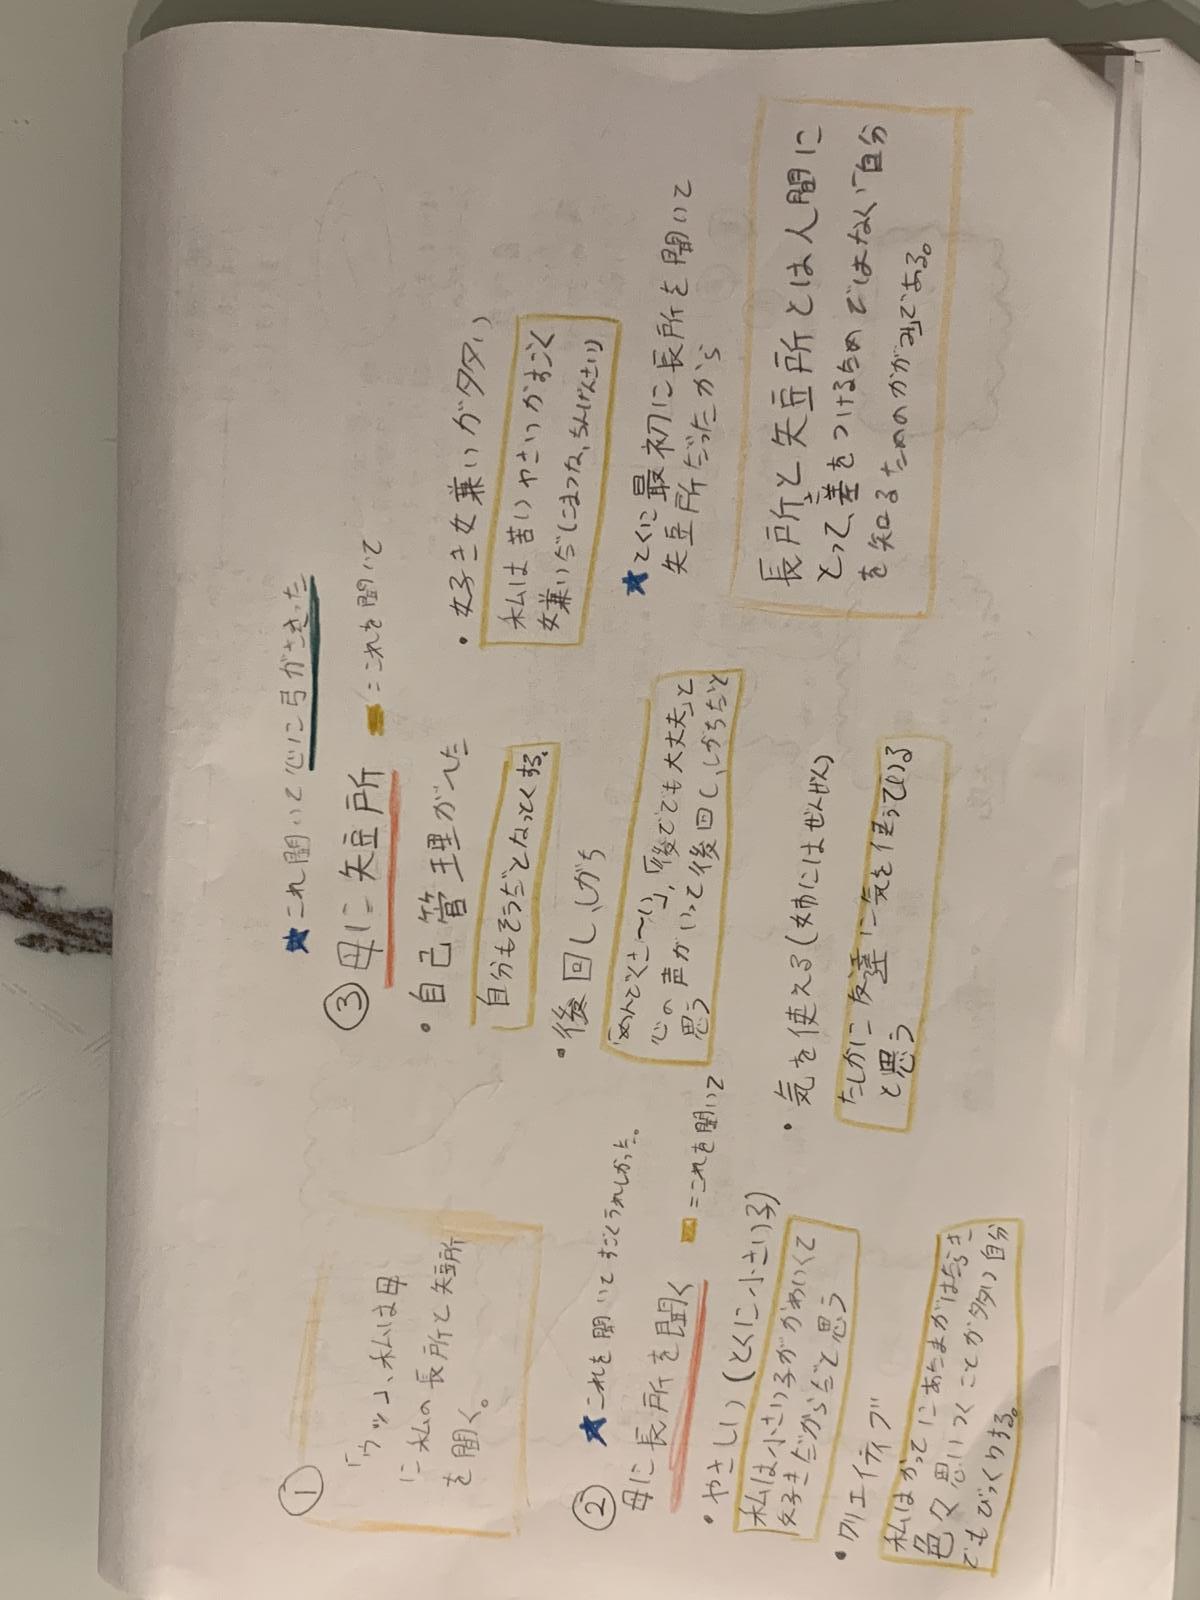 ①
「ウッ」、私は母
に私の長所と短所
を聞く。
②
★これを聞いてすごくうれしかった。
母に長所を聞く
=これを聞いて
・やさしい(とくに小さい子)
私は小さい子がかわいくて
好きだからだと思う
・クリエイティブ
私はかってにあたまがはたらき
色々思いつくことが多い自分
でもびっくりする。
・気を使える(姉にはぜんぜん)
たしかに友達に気を使っている
と思う
★これ聞いて心に弓がささった
③
母に短所
=これを聞いて
・自己管理がヘた
自分もそうだとなっとくする。
・後回しがち
「めんどくさ〜い」、「後ででも大丈夫」と
心の声がいって後回ししがちだと
思う
・好き嫌いが多い
私は苦いやさいがすごく
嫌いだ(こまつな、ちんげんさい)
★とくに最初に長所を聞いて
短所だったから
長所と短所とは人間に
とって、差をつけるためではなく、「自分
を知るためのかがみ」である。